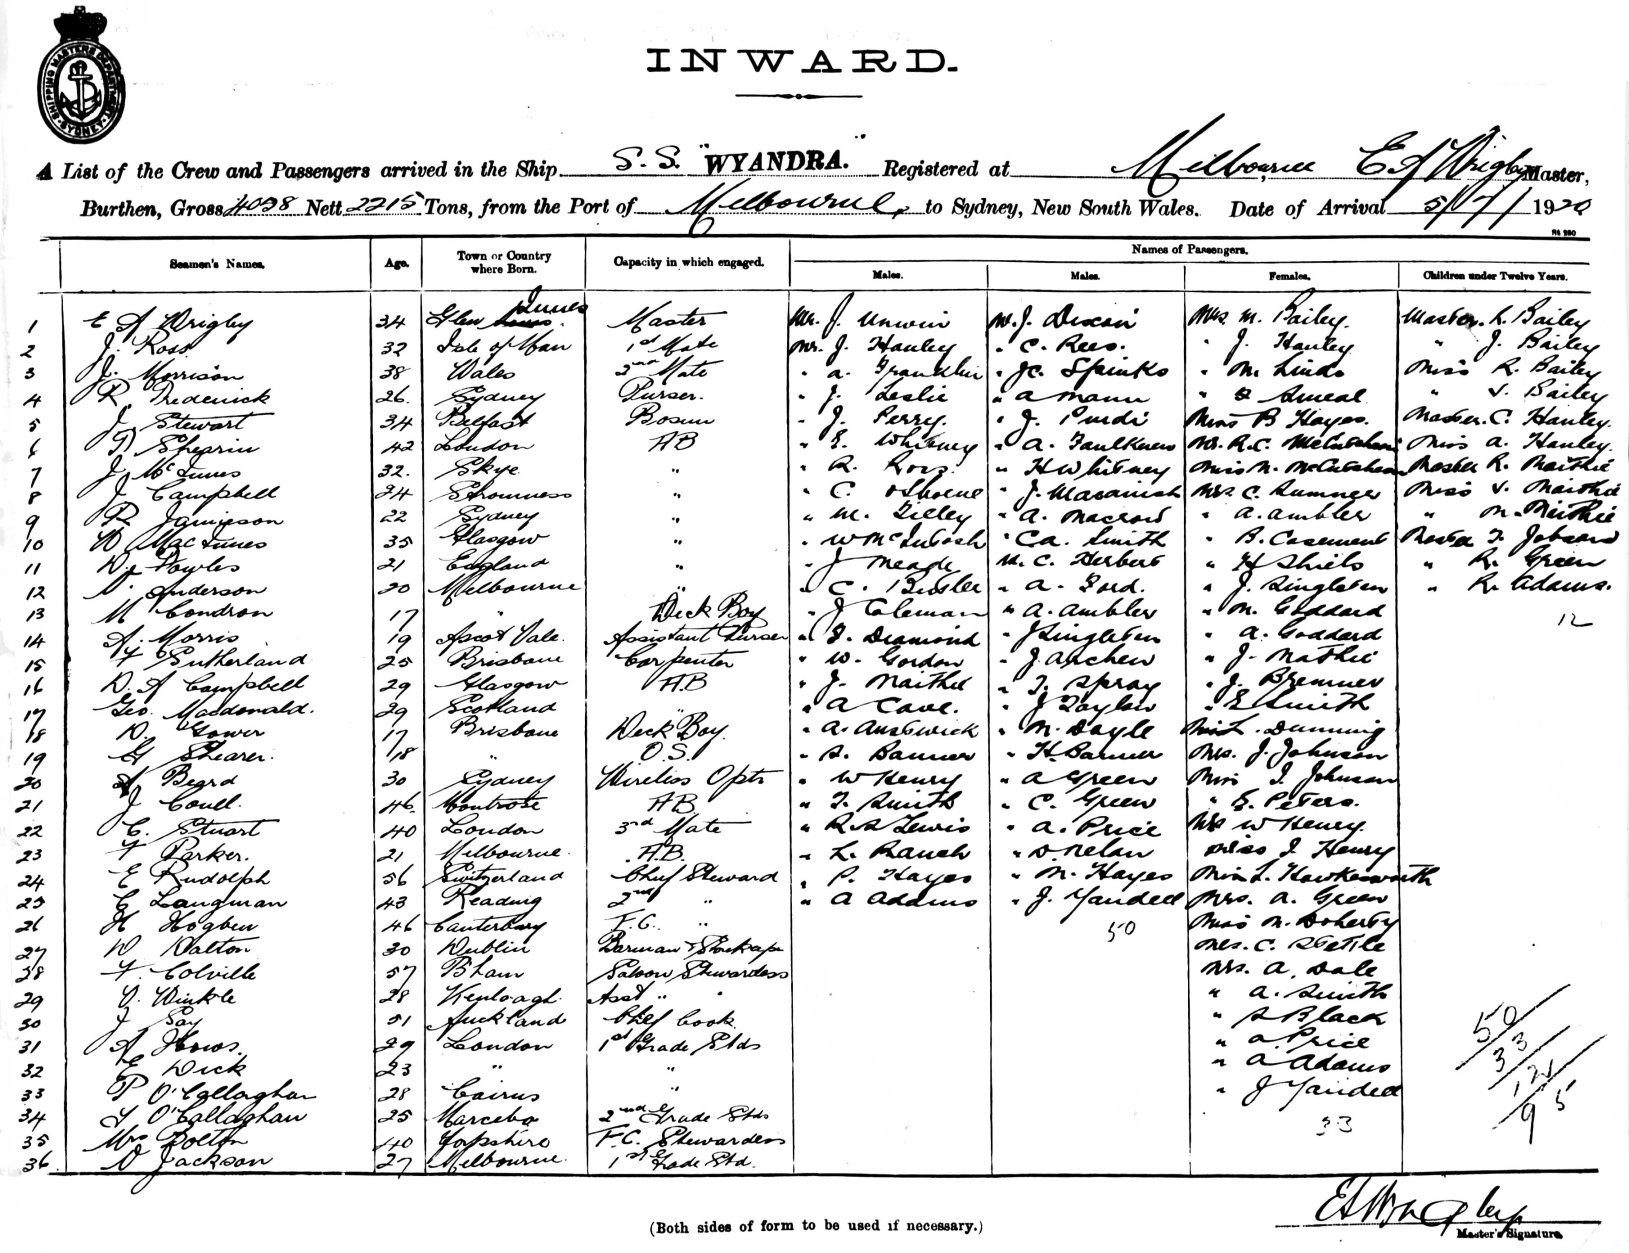 SHIPPING MASTERS DEPARTMENT SYDNEY
INWARD.
A List of the Crew and Passengers arrived in the Ship S.S. "WYANDRA." Registered at Melbourne E A Wrigby Master,
Burthen, Gross 4038 Nett 2215 Tons, from the Port of Melbourne, to Sydney, New South Wales. Date of Arrival 5/7/1920
Seamen's Names. Age. Town or Country where Born. Capacity in which engaged. Names of Passengers.
Males. Males. Females. Children under Twelve Years.
1 E A Wrigby 34 Glen Innes Master Mr. J. Unwin M. J. Dixon Mrs M. Bailey. Master. R. Bailey
2 J. Ross 32 Isle of Man 1st Mate Mr. J. Hanley " C. Rees. " J. Hanley " J. Bailey
3 J. Morrison 38 Wales 2nd Mate " A. Franklin " J C. Spinks " M. Linds Miss R. Bailey
4 R. Frederick 26. Sydney Purser. " J. Leslie " A Mann " Smeal " V. Bailey
5 J. Stewart 34 Belfast Bosun " J. Perry. " J. Purdi Miss B Hayes. Master. C. Hanley.
6 Shearin 42 London AB " E. Whitney " A. Faulkner Mrs. R.C. McCutcheon Miss A. Hanley.
7 J McInnes 32. Skye " " R. Ross. " H Whitney Miss N. McCutcheon Master R. Maithie
8 J Campbell 24 Stromness " " C. Osborne " J. Macainsh Mrs. C. Sumner Miss V. Maithie
9 R. Jamieson 22 Sydney " " M. Tilley " A. Macrow " A. Ambler " M. Maithie
10 W MacInnes 35 Glasgow " " W McIntosh " C.A. Smith " B. Casement Master T. Jobson
11 W. Fowles 21 England " " J Meade M. C. Herbert " H Shiels " R. Green
12 Anderson 20 Melbourne " " C. Butler " A. Ford. " J. Singleton " R. Adams.
13 M Condron 17 " Deck Boy " J Coleman " A. Ambler " M. Goddard 12
14 A. Morris 19 Ascot Vale. Assistant Purser " Diamond " J Singleton " A. Goddard
15 F Sutherland 25 Brisbane Carpenter " W. Gordon " J. Archer " J. Mathie
16 D. A Campbell 29 Glasgow A.B " J. Maithie " T. Spray " J. Bremner
17 Geo. Macdonald. 29 Scotland " " A Cave. " J Taylor " E Smith
18 D. Gower 17 Brisbane Deck Boy. " A. Anstwick " M. Doyle Miss L. Dunning
19 G Shearer. 18 " O.S. " S. Banner " H. Banner Mrs. J. Johnson
20 A Beard 30 Sydney Wireless Optr " W Henry " A Green Miss I. Johnson
21 J Coull. 46. Montrose AB " T. Smith " C. Green " E. Peters.
22 C. Stuart 40 London 3rd Mate " R.S Lewis " A. Price Mrs W Henry.
23 F Parker. 21 Melbourne. A.B. " L. Ranch " D. Nelan Miss I Henry
24 E Rudolph 56 Switzerland Chief Steward " P. Hayes " M. Hayes Miss L. Hawkesworth
25 C Langman 43 Reading 2nd " " A Adams " J. Yandell Mrs. A. Green
26 H Hogben 46 Canterbury F.C. " 50 Miss M. Doherty
27 W Walton 30 Dublin Barman & Storkeepr Mrs. C. Stettle
28 F. Colville 57 B'ham Saloon Stewardess Mrs. A. Dale
29 V. Winkle 28 Asst " " " A. Smith
30 J Say 51 Auckland Chef Cook. " S Black
31 A Hows. 29 London 1st Grade Stds " A. Price
32 E Dick 23 " " " A Adams
33 P O'Callaghan 28 Cairns " " J Yandell
34 T O'Callaghan 25 Mareeba 2nd Grade Stds
35 Mrs Bolton 40 Yorkshire F.C. Stewardess 33
36. V Jackson 27 Melbourne. 1st Grade Std.
50
33
12
95
E A Wrigby
Master's Signature.
(Both sides of form to be used if necessary.)